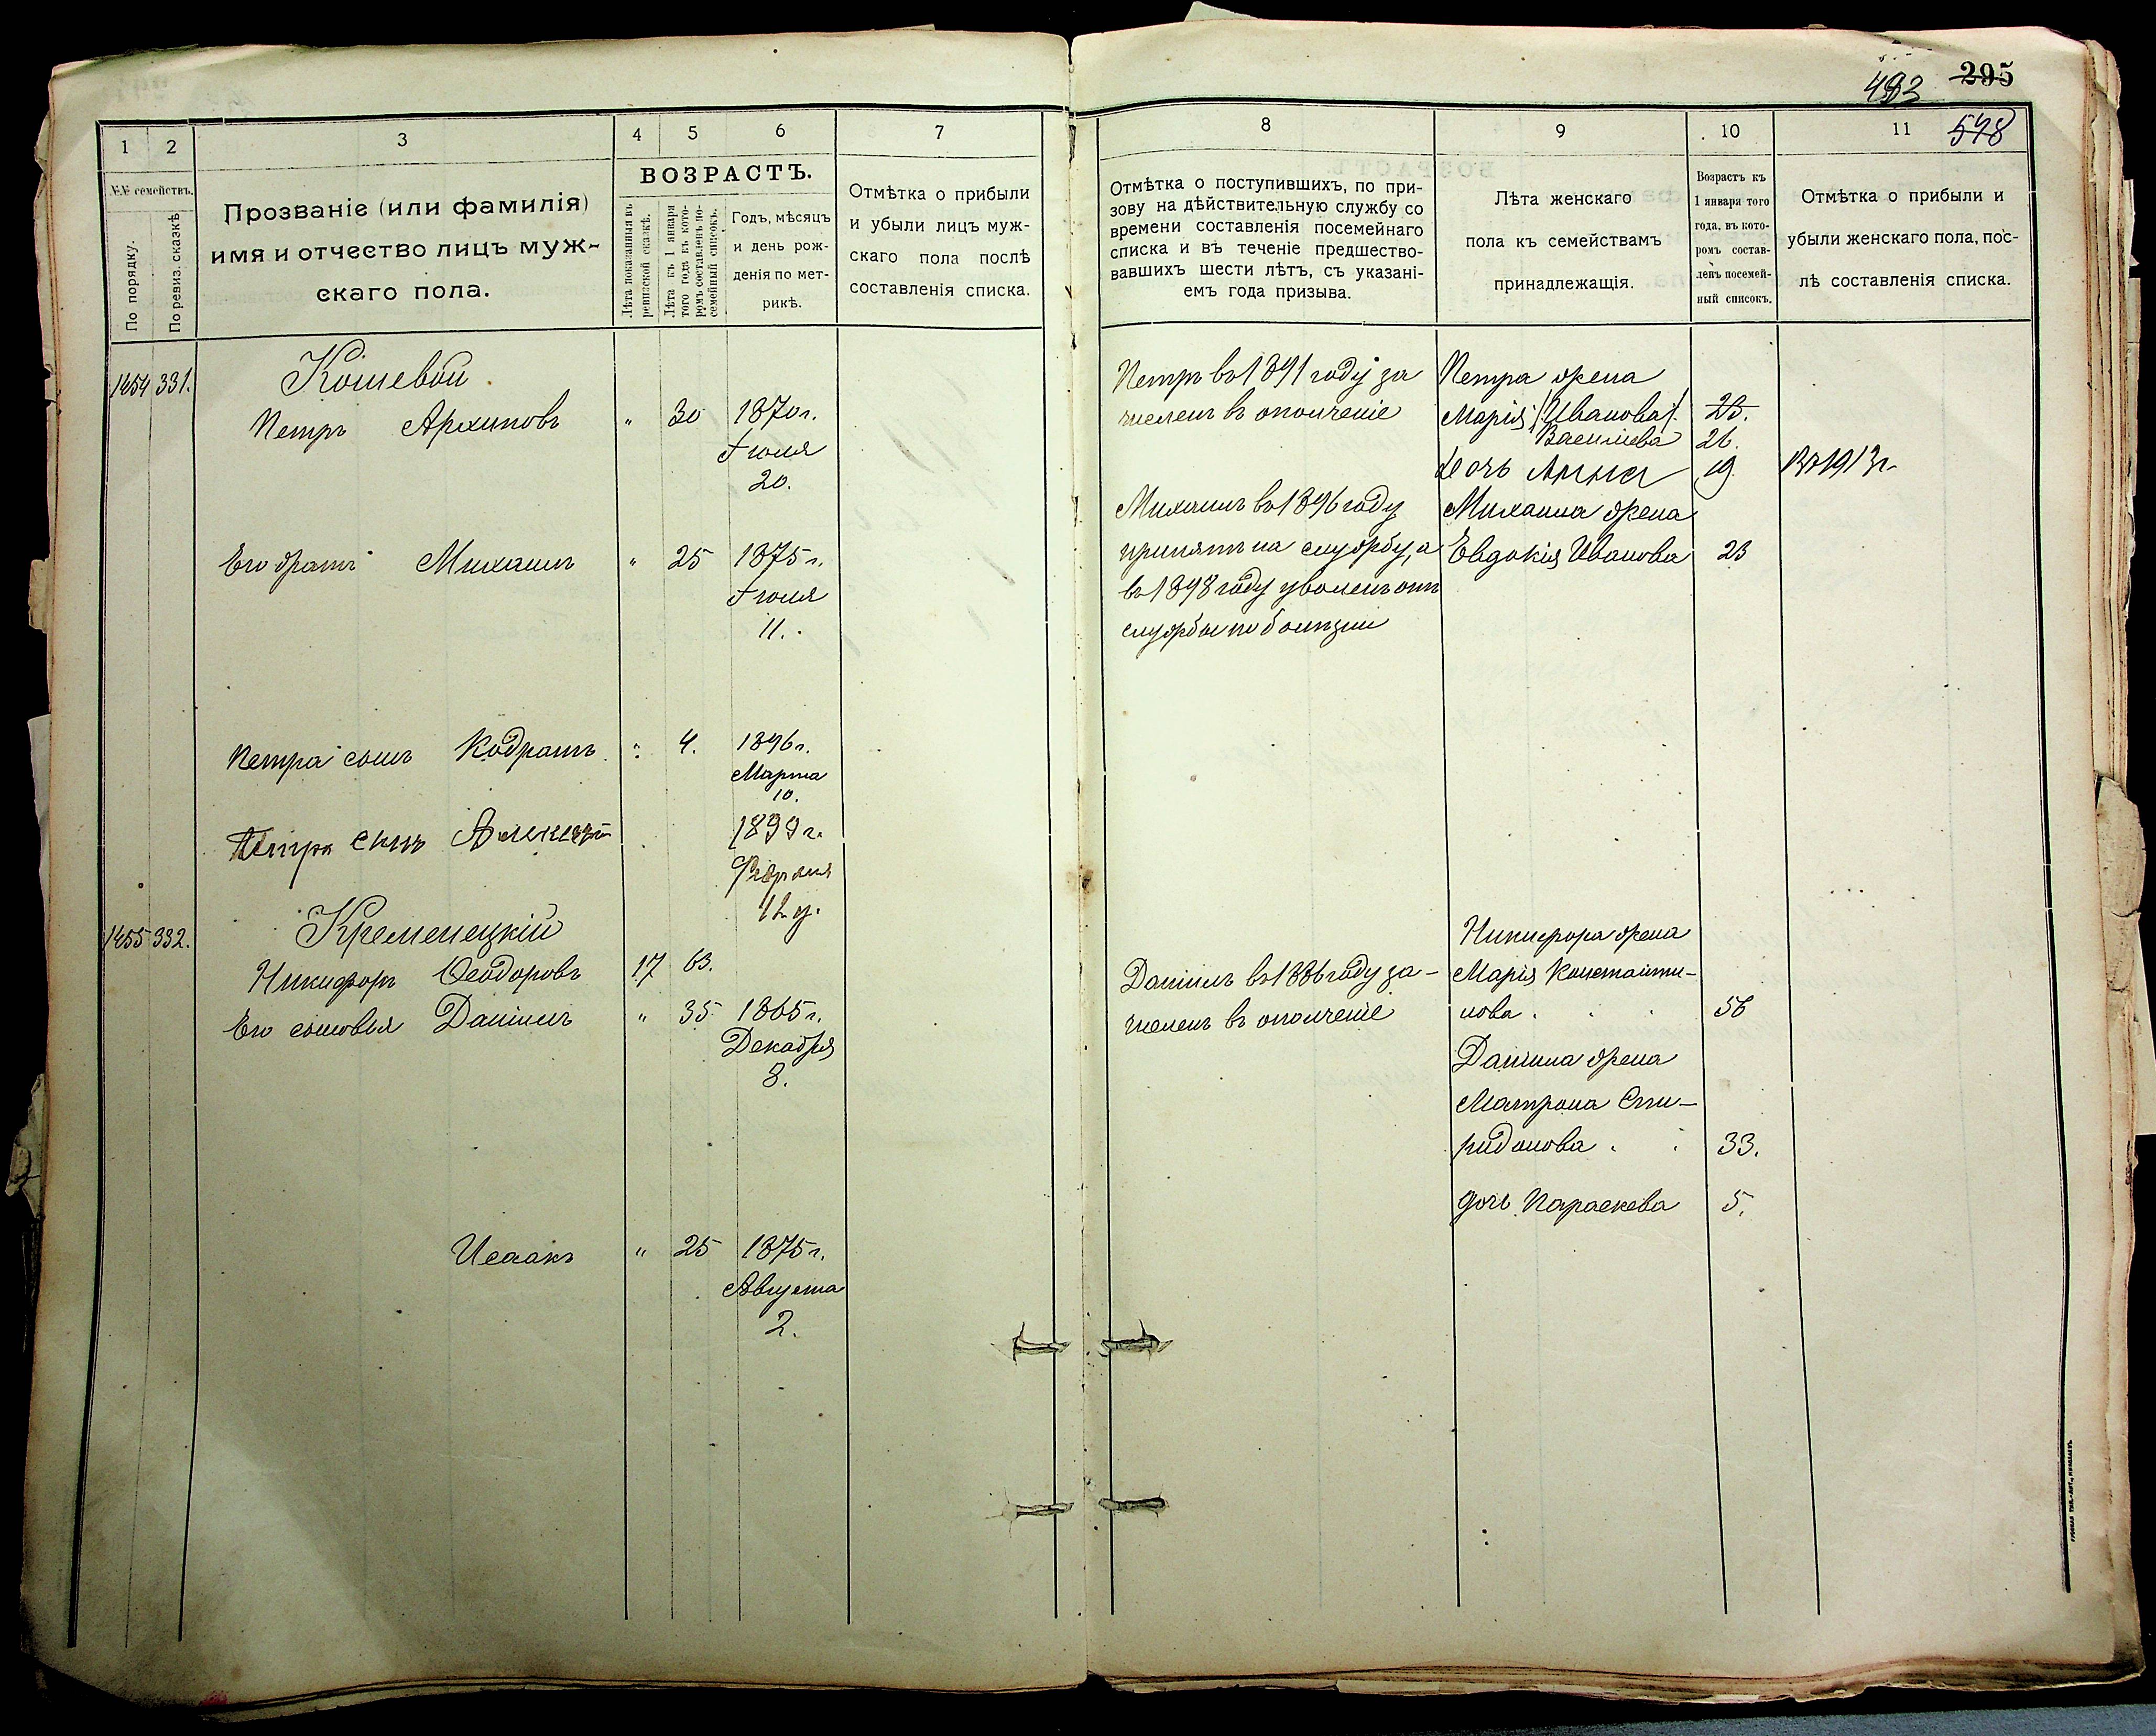 295
493
578
1
2
3
4
5
6
7
№№ семействъ.
По порядку.
По ревиз. сказкѣ
Прозваніе (или фамилія)
имя и отчество лицъ муж-
скаго пола.
ВОЗРАСТЪ.
Лѣта показанныя въ
ревизской сказкѣ.
Лѣта къ 1 января
того года къ кото-
ромъ составленъ по-
семейный списокъ.
Годъ, мѣсяцъ
и день рож-
денія по мет-
рикѣ.
Отмѣтка о прибыли
и убыли лицъ муж-
скаго пола послѣ
составленія списка.
1454 331. Кошевой
Петръ Архиповъ " 30 1870 г.
Іюля
20.
Его братъ Михаилъ " 25 1875 г.
Іюля
11.
Петра сынъ Кодратъ " 4. 1896 г.
Марта
10.
Петра сынъ Алексѣй 1899 г.
Февраля
12 д.
1455 332. Кременецкій
Никифоръ Ѳеодоровъ 17 63.
Его сыновья Даніилъ " 35 1865 г.
Декабря
8.
Исаакъ " 25 1875 г.
Августа
2.
8
9
10
11
Отмѣтка о поступившихъ, по при-
зову на дѣйствительную службу со
времени составленія посемейнаго
списка и въ теченіе предшество-
вавшихъ шести лѣтъ, съ указані-
емъ года призыва.
Лѣта женскаго
пола къ семействамъ
принадлежащія.
Возрастъ къ
1 января того
года, въ кото-
ромъ состав-
ленъ посемей-
ный списокъ.
Отмѣтка о прибыли и
убыли женскаго пола, пос-
лѣ составленія списка.
Петръ въ 1891 году за
численъ въ ополченіе
Михаилъ въ 1896 году
принятъ на службу, а
въ 1898 году уволенъ отъ
службы по болѣзни
Петра жена
Марія (Иванова) 25.
Васильева 26.
Дочь Анна 19. Въ 1913 г.
Михаила жена
Евдокія Иванова 23
Даніилъ въ 1886 году за-
численъ въ ополченіе
Никифора жена
Марія Константи-
нова . . . 56
Даніила жена
Матрона Спи-
ридонова . . 33.
дочь Параскева 5.